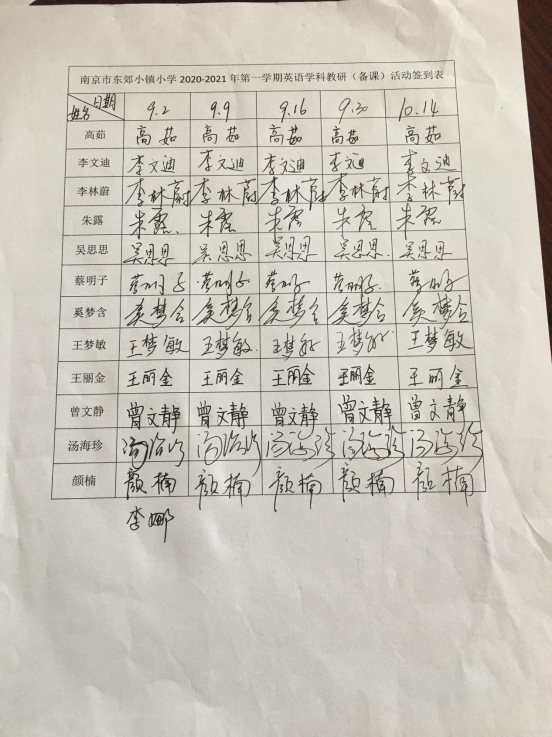 南京市东郊小镇小学 2020-2021 年第一学期英语学科教研（备课）活动签到表
日期 姓名 9.2 9.9 9.16 9.30 10.14
高茹 高茹 高茹 高茹 高茹 高茹
李文迪 李文迪 李文迪 李文迪 李文迪 李文迪
李林蔚 李林蔚 李林蔚 李林蔚 李林蔚 李林蔚
朱露 朱露 朱露 朱露 朱露 朱露
吴思思 吴思思 吴思思 吴思思 吴思思 吴思思
蔡明子 蔡明子 蔡明子 蔡明子 蔡明子 蔡明子
奚梦含 奚梦含 奚梦含 奚梦含 奚梦含 奚梦含
王梦敏 王梦敏 王梦敏 王梦敏 王梦敏 王梦敏
王丽金 王丽金 王丽金 王丽金 王丽金 王丽金
曾文静 曾文静 曾文静 曾文静 曾文静 曾文静
汤海珍 汤海珍 汤海珍 汤海珍 汤海珍 汤海珍
颜楠 颜楠 颜楠 颜楠 颜楠 颜楠
李娜